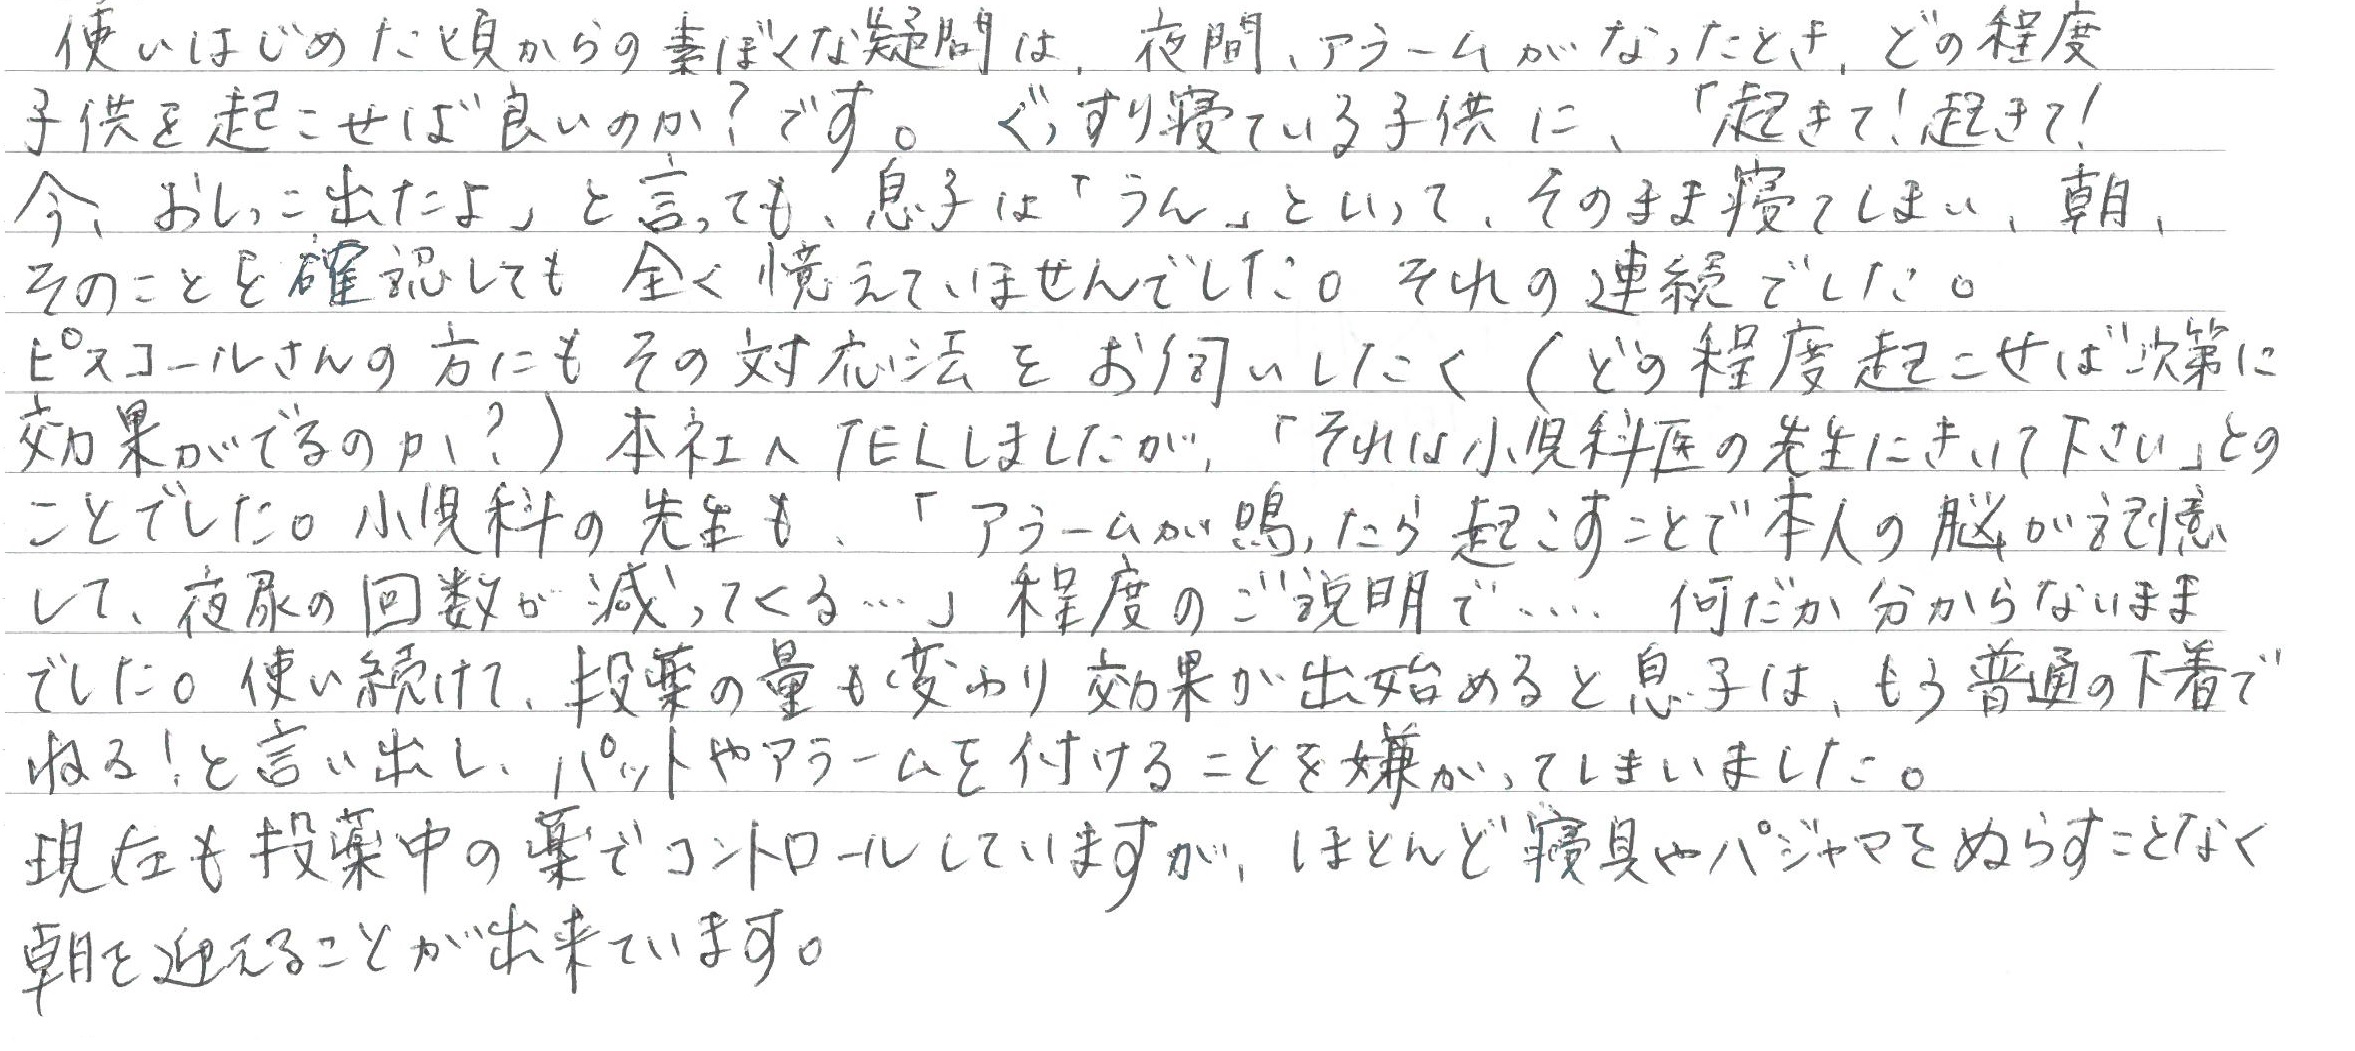 使いはじめた頃からの素ぼくな疑問は、夜間、アラームがなったとき、どの程度
子供を起こせば良いのか？です。ぐっすり寝ている子供に、「起きて！起きて！
今、おしっこ出たよ」と言っても、息子は「うん」といって、そのまま寝てしまい、朝、
そのことを確認しても全く憶えていませんでした。それの連続でした。
ピスコールさんの方にもその対応法をお伺いしたく（どの程度起こせば次第に
効果がでるのか？）本社へTELしましたが、「それは小児科医の先生にきいて下さい」との
ことでした。小児科の先生も、「アラームが鳴ったら起こすことで本人の脳が記憶
して、夜尿の回数が減ってくる…」程度のご説明で‥‥何だか分からないまま
でした。使い続けて、投薬の量も変わり効果が出始めると息子は、もう普通の下着で
ねる！と言い出し、パットやアラームを付けることを嫌がってしまいました。
現在も投薬中の薬でコントロールしていますが、ほとんど寝具やパジャマをぬらすことなく
朝を迎えることが出来ています。